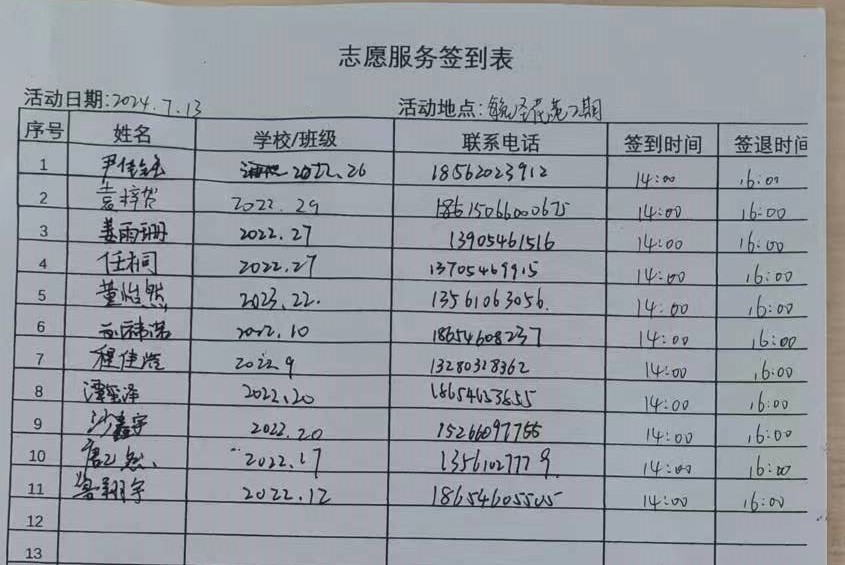 志愿服务签到表
活动日期:2024.7.13 活动地点: 第2期
序号 姓名 学校/班级 联系电话 签到时间 签退时间
1 尹佳 2022.26 18562023912 14:00 16:00
2 袁梓贺 2022.29 14:00 16:00
3 姜雨珊 2022.27 13905461516 14:00 16:00
4 任桐 2022.27 13705469915 14:00 16:00
5 董浩然 2023.22. 13561063056. 14:00 16:00
6 2022.10 18654608237 14:00 16:00
7 程佳 2022.9 13280328362 14:00 16:00
8 泽 2022.20 14:00 16:00
9 沙鑫宇 2022.20 14:00 16:00
10 2022.17 13561027779. 14:00 16:00
11 翔宇 2022.12 18654605505 14:00 16:00
12
13